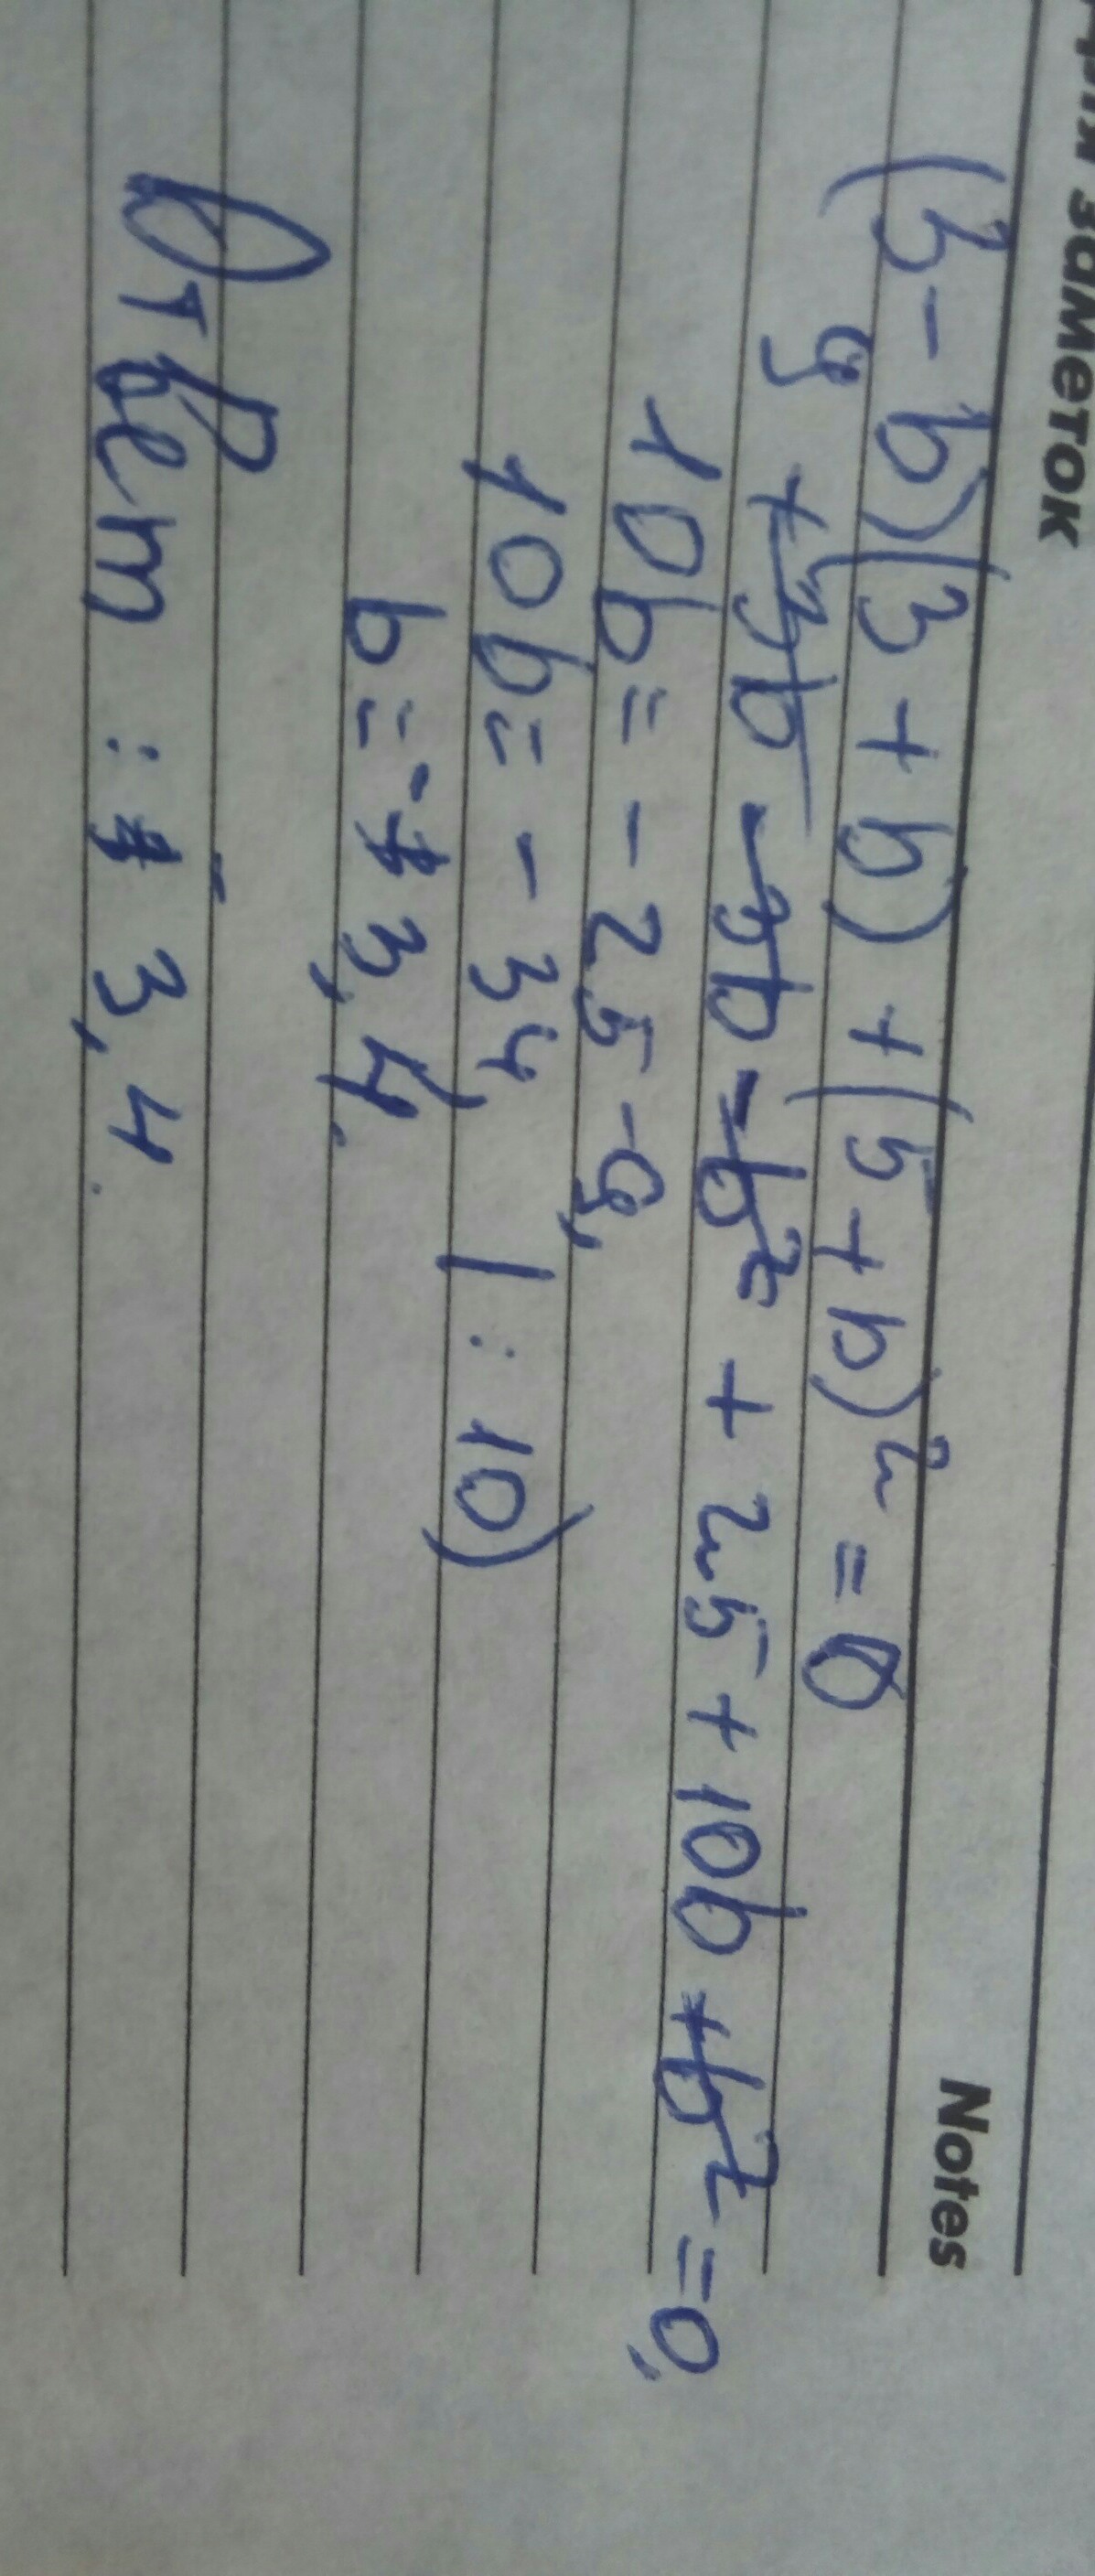 для заметок Notes
(3-b)(3+b)+(5+b)²=0
9+3b-3b-b²+25+10b+b²=0,
10b=-25-9,
10b=-34, |:10)
b=-3,4.
Ответ: -3,4.